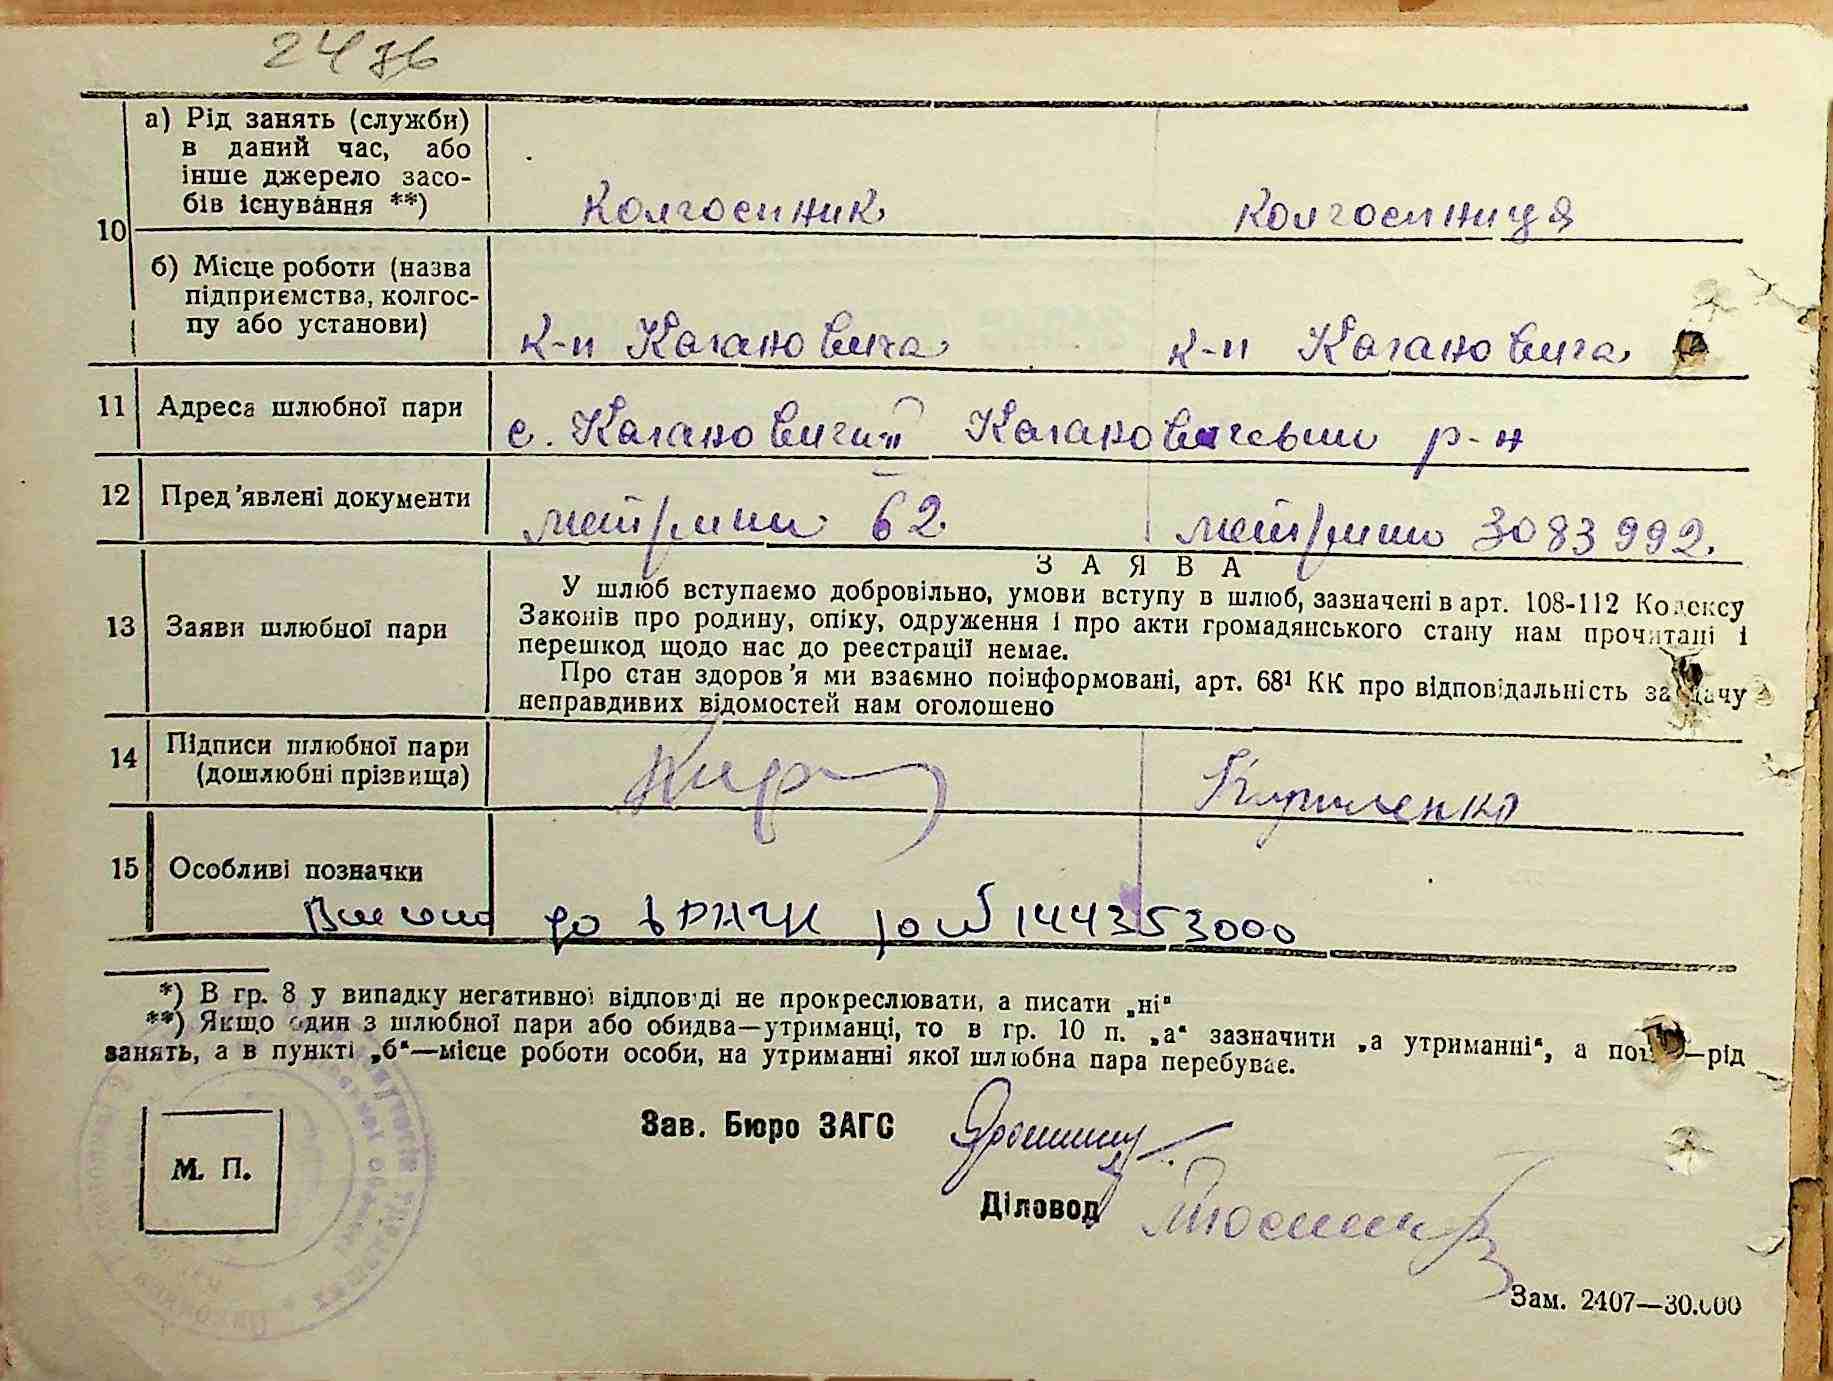 24 зв
а) Рід занять (служби)
в даний час, або
інше джерело засо-
бів існування **)
колгоспник колгоспниця
10
б) Місце роботи (назва
підприємства, колгос-
пу або установи)
к-п Кагановича к-п Кагановича
11 Адреса шлюбної пари
с. Кагановичи Кагановичський р-н
12 Пред'явлені документи
метрики 62. метрики 3083992.
ЗАЯВА
13 Заяви шлюбної пари
У шлюб вступаємо добровільно, умови вступу в шлюб, зазначені в арт. 108-112 Кодексу
Законів про родину, опіку, одруження і про акти громадянського стану нам прочитані і
перешкод щодо нас до реєстрації немає.
Про стан здоров'я ми взаємно поінформовані, арт. 68¹ КК про відповідальність за дачу
неправдивих відомостей нам оголошено
14 Підписи шлюбної пари
(дошлюбні прізвища)
Кириленко
15 Особливі позначки
Внесено до ДРАЦС 144353000
*) В гр. 8 у випадку негативної відповіді не прокреслювати, а писати „ні"
**) Якщо один з шлюбної пари або обидва—утриманці, то в гр. 10 п. „а" зазначити „а утриманні", а потім—рід
занять, а в пункті „б"—місце роботи особи, на утриманні якої шлюбна пара перебуває.
Зав. Бюро ЗАГС
М. П.
Діловод
Зам. 2407—30.000